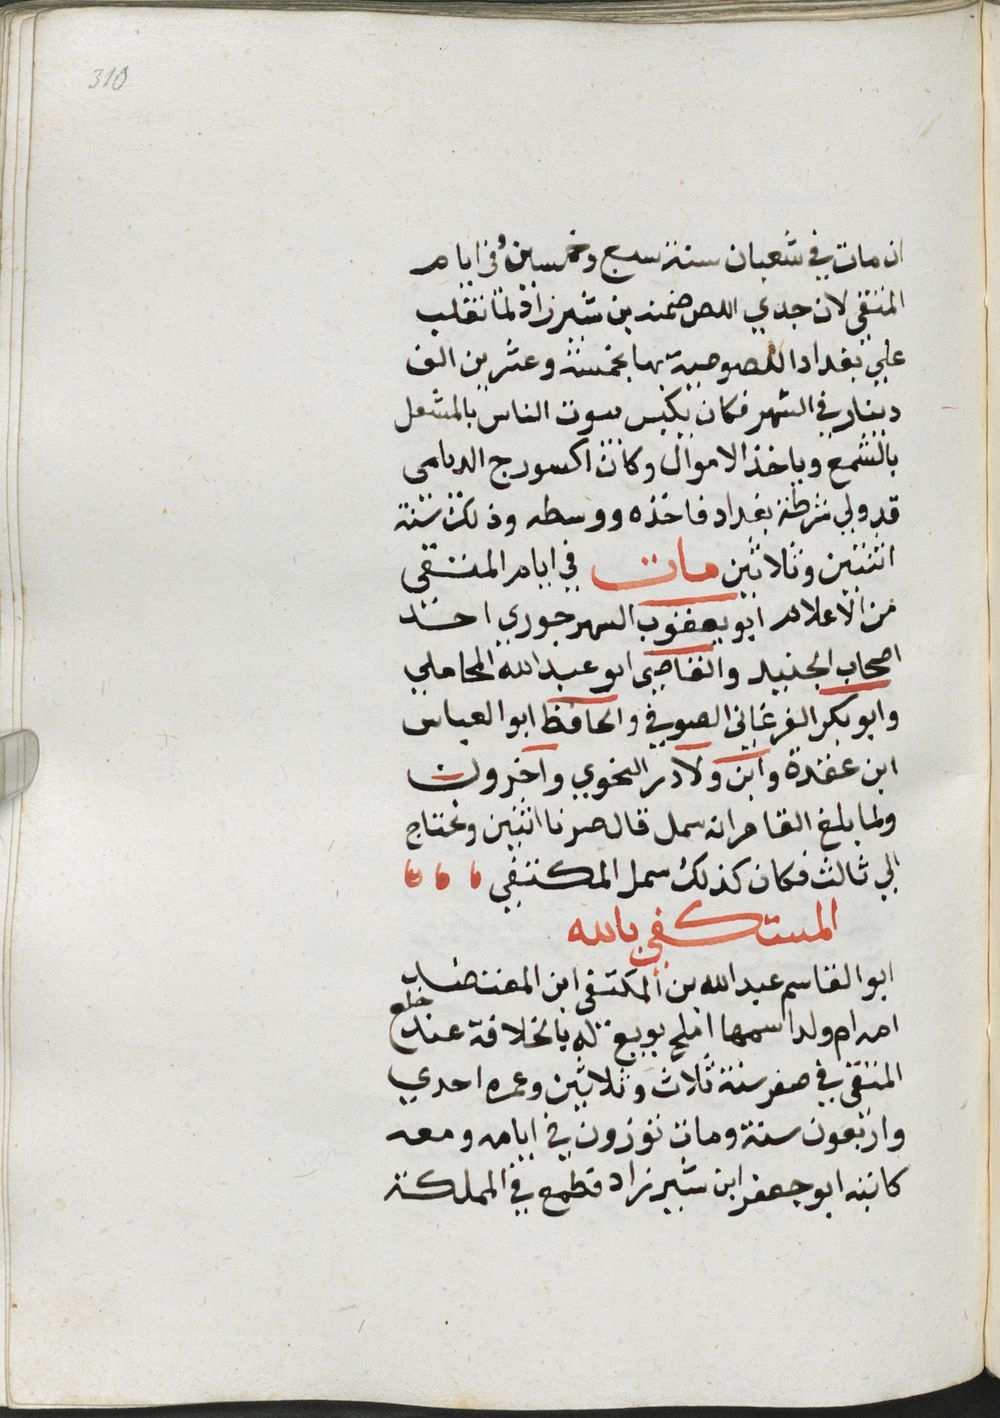 310
ان مات في شعبان سنة سبع وخمسين وفي ايام
المتقي لان جدي اللص ضمنه بن شيرزاد لما تغلب
علي بغداد اللصوصية بها بخمسة وعشرين الف
دينار في الشهر فكان يكبس بيوت الناس بالمشعل
بالشمع وياخذ الاموال وكان اكسورج الديلمى
قد ولي شرطة بغداد فاخذه ووسطه وذلك سنة
اثنتين وثلاثين مات في ايام المتقى
من الاعلام ابو يعقوب النهرجوري احد
اصحاب الجنيد والقاضى ابو عبد الله المحاملي
وابو بكر الفرغانى الصوفي والحافظ ابو العباس
ابن عقدة وابن ولاد النحوي واخرون
ولما بلغ القاهر انه سمل قال صرنا اثنين ونحتاج
الي ثالث فكان كذلك سمل المكتفي
المستكفي بالله
ابو القاسم عبد الله بن المكتفى ابن المعتضد
امه ام ولد اسمها املح بويع له بالخلافة عند خلع
المتقى في صفر سنة ثلاث وثلاثين وعمره احدي
واربعون سنة ومات توزون في ايامه ومعه
كاتبه ابو جعفر ابن شيرزاد فطمع في المملكة